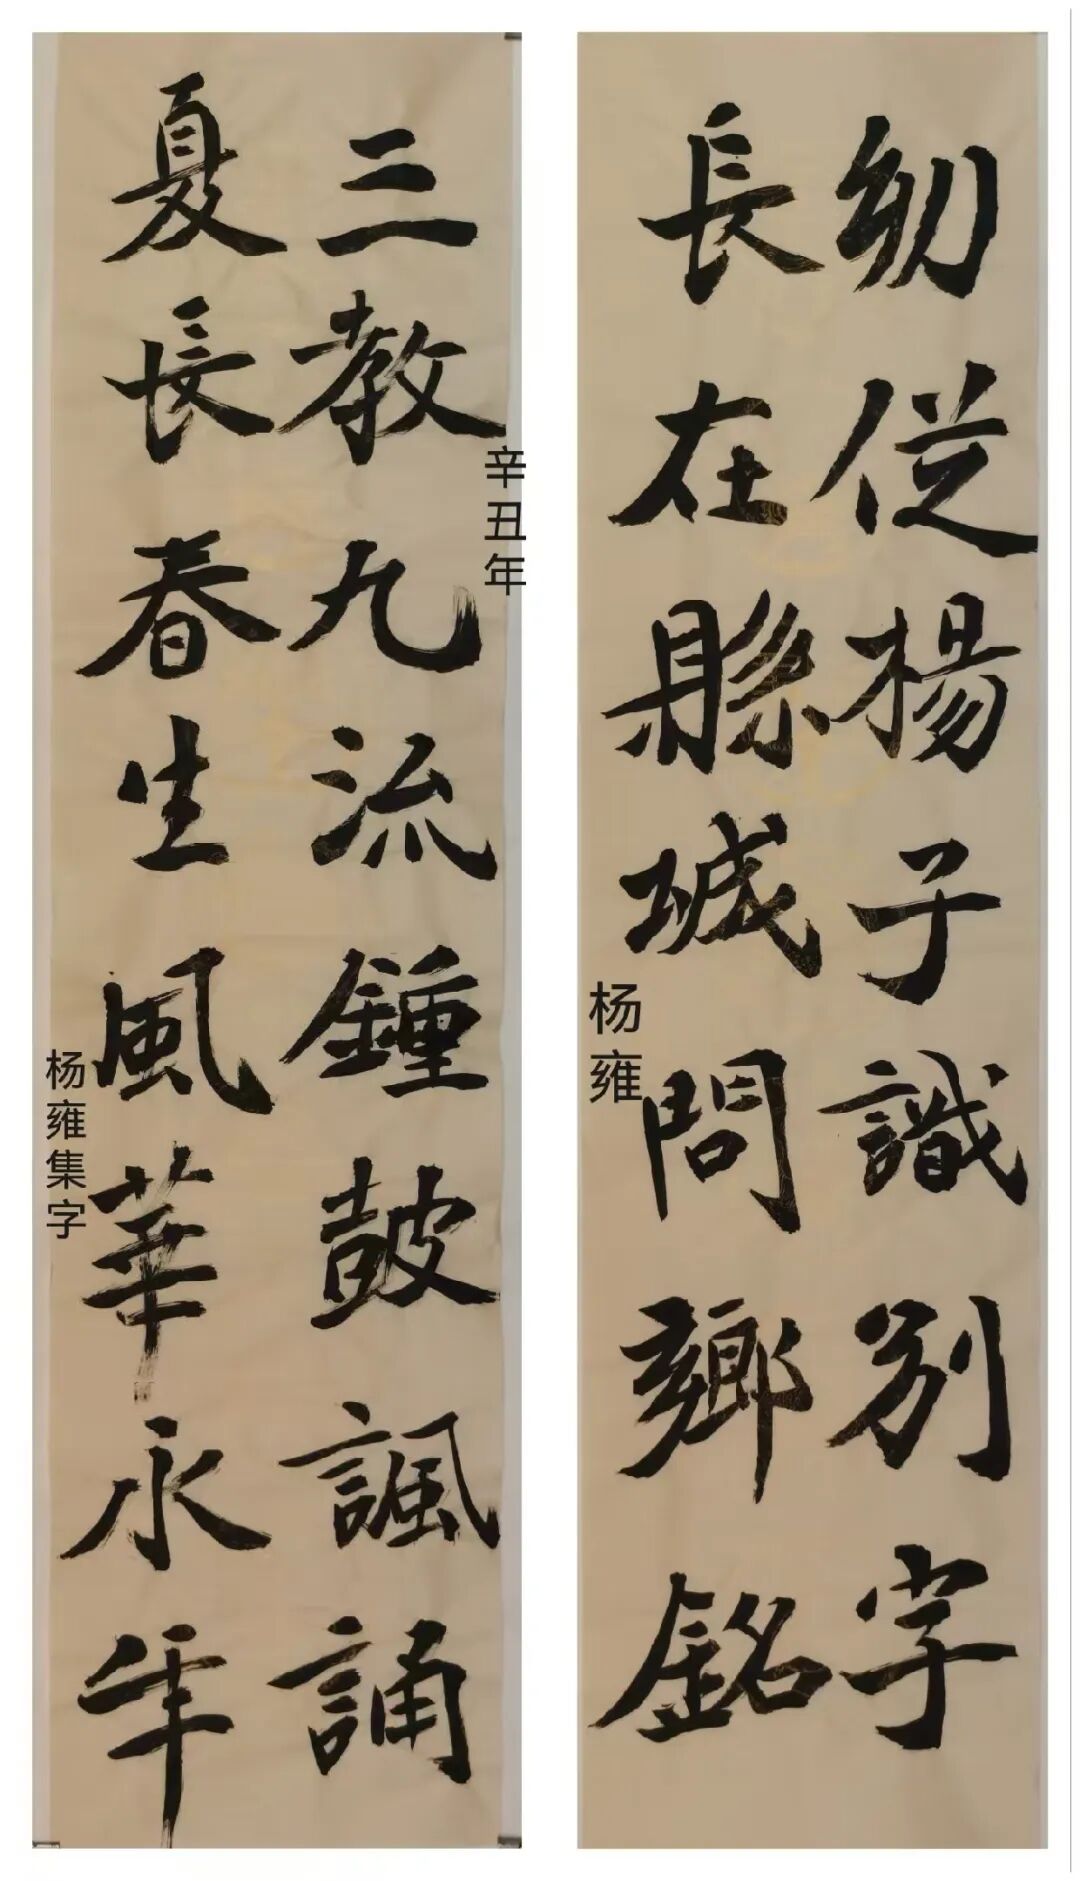 幼從楊子識別字
長在縣城問鄉銘
杨雍
三教九流鍾鼓諷誦
夏長春生風華永年
辛丑年
杨雍集字